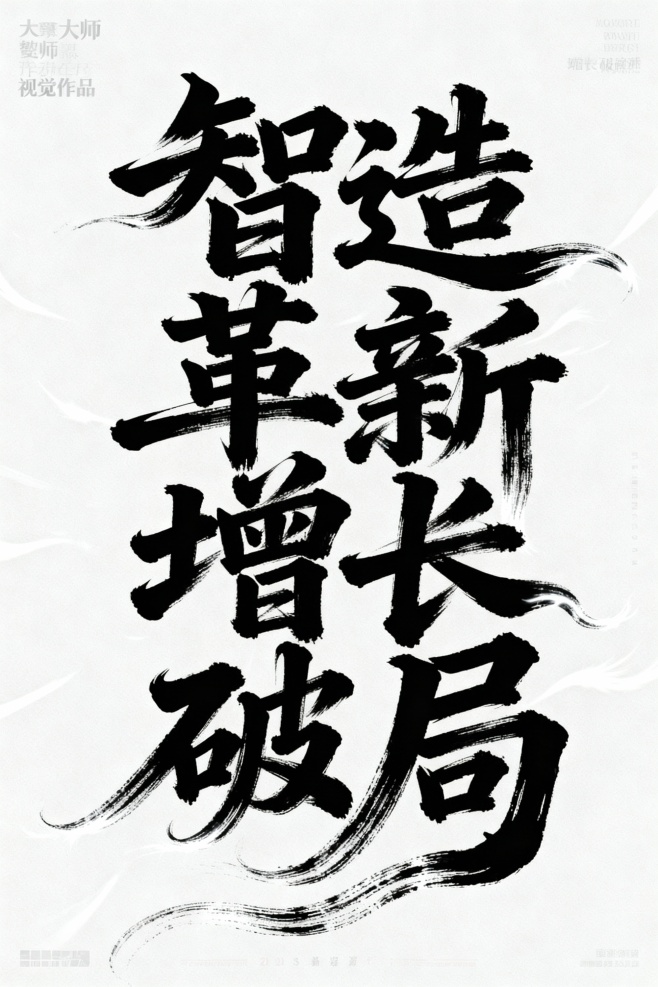 大 大师
师
视觉作品
智造
革新
增长
破局